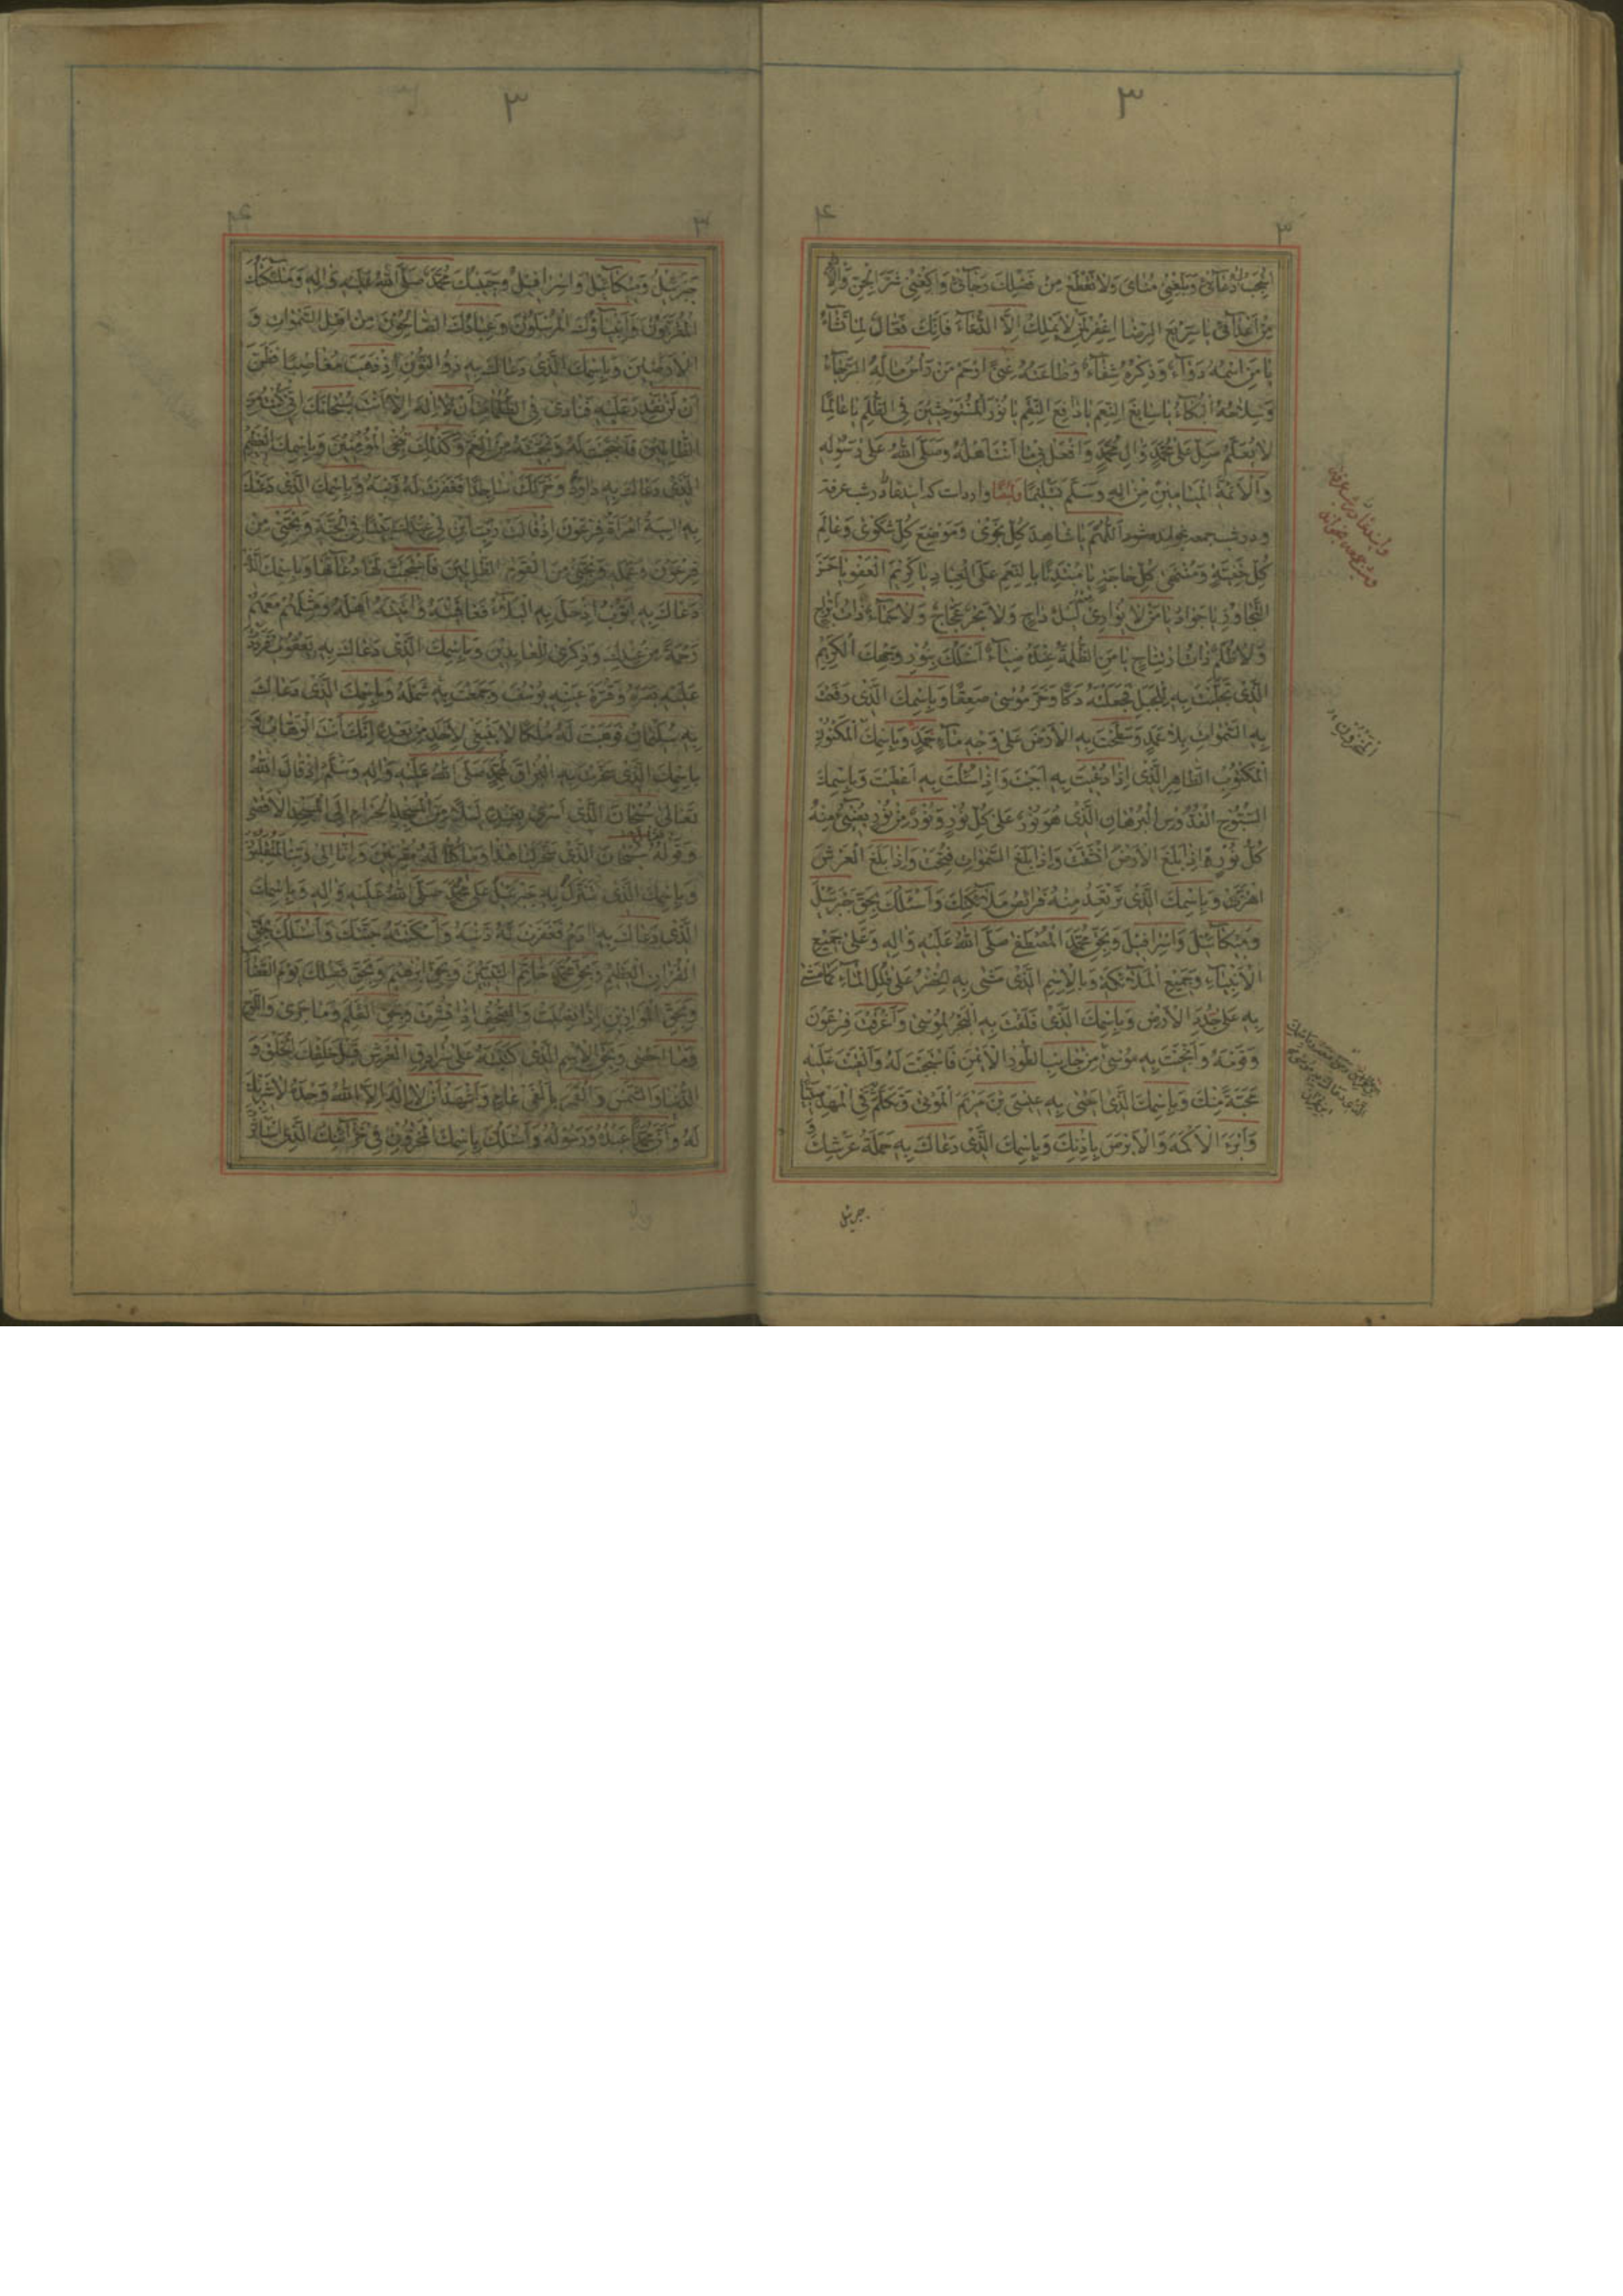 ٣
٣
اسْتَجِبْ دُعَائِي وَبَلِّغْنِي مُنَايَ وَلَا تَقْطَعْ مِنْ فَضْلِكَ رَجَائِي وَاكْفِنِي شَرَّ الْجِنِّ وَالْإِنْسِ
مِنْ أَعْدَائِي يَا سَرِيعَ الرِّضَا اغْفِرْ لِمَنْ لَا يَمْلِكُ إِلَّا الدُّعَاءَ فَإِنَّكَ فَعَّالٌ لِمَا تَشَاءُ
يَا مَنِ اسْمُهُ دَوَاءٌ وَذِكْرُهُ شِفَاءٌ وَطَاعَتُهُ غِنًى ارْحَمْ مَنْ رَأْسُ مَالِهِ الرَّجَاءُ
وَسِلَاحُهُ الْبُكَاءُ يَا سَابِغَ النِّعَمِ يَا دَافِعَ النِّقَمِ يَا نُورَ الْمُسْتَوْحِشِينَ فِي الظُّلَمِ يَا عَالِمًا
لَا يُعَلَّمُ صَلِّ عَلَى مُحَمَّدٍ وَآلِ مُحَمَّدٍ وَافْعَلْ بِي مَا أَنْتَ أَهْلُهُ وَصَلَّى اللهُ عَلَى رَسُولِهِ
وَالْأَئِمَّةِ الْمَيَامِينَ مِنْ آلِهِ وَسَلَّمَ تَسْلِيمًا وَايْضًا وارداست كه ايندعا در شب عرفه
و در شب جمعه بخواند شود اَللّهُمَّ يَا شَاهِدَ كُلِّ نَجْوَى وَمَوْضِعَ كُلِّ شَكْوَى وَعَالِمَ
كُلِّ خَفِيَّةٍ وَمُنْتَهَى كُلِّ حَاجَةٍ يَا مُبْتَدِئًا بِالنِّعَمِ عَلَى الْعِبَادِ يَا كَرِيمَ الْعَفْوِ يَا حَسَنَ
التَّجَاوُزِ يَا جَوَادُ يَا مَنْ لَا يُوَارِي مِنْهُ لَيْلٌ دَاجٍ وَلَا بَحْرٌ عَجَّاجٌ وَلَا سَمَاءٌ ذَاتُ أَبْرَاجٍ
وَلَا ظُلَمٌ ذَاتُ ارْتِتَاجٍ يَا مَنِ الظُّلْمَةُ عِنْدَهُ ضِيَاءٌ أَسْئَلُكَ بِنُورِ وَجْهِكَ الْكَرِيمِ
الَّذِي تَجَلَّيْتَ بِهِ لِلْجَبَلِ فَجَعَلْتَهُ دَكًّا وَخَرَّ مُوسَى صَعِقًا وَبِاسْمِكَ الَّذِي رَفَعْتَ
بِهِ السَّمَوَاتِ بِلَا عَمَدٍ وَسَطَحْتَ بِهِ الْأَرْضَ عَلَى وَجْهِ مَاءٍ جَمَدٍ وَبِاسْمِكَ الْمَكْنُونِ
الْمَكْتُوبِ الطَّاهِرِ الَّذِي إِذَا دُعِيتَ بِهِ أَجَبْتَ وَإِذَا سُئِلْتَ بِهِ أَعْطَيْتَ وَبِاسْمِكَ
السُّبُّوحِ الْقُدُّوسِ الْبُرْهَانِ الَّذِي هُوَ نُورٌ عَلَى كُلِّ نُورٍ وَنُورٌ مِنْ نُورٍ يُضِيءُ مِنْهُ
كُلُّ نُورٍ إِذَا بَلَغَ الْأَرْضَ انْشَقَّتْ وَإِذَا بَلَغَ السَّمَوَاتِ فُتِحَتْ وَإِذَا بَلَغَ الْعَرْشَ
اهْتَزَّ وَبِاسْمِكَ الَّذِي تَرْتَعِدُ مِنْهُ فَرَائِصُ مَلَائِكَتِكَ وَأَسْئَلُكَ بِحَقِّ جَبْرَئِيلَ
وَمِيكَائِيلَ وَإِسْرَافِيلَ وَبِحَقِّ مُحَمَّدٍ الْمُصْطَفَى صَلَّى اللهُ عَلَيْهِ وَآلِهِ وَعَلَى جَمِيعِ
الْأَنْبِيَاءِ وَجَمِيعِ الْمَلَائِكَةِ وَبِالْإِسْمِ الَّذِي مَشَى بِهِ الْخِضْرُ عَلَى قُلَلِ الْمَاءِ كَمَا مَشَى
بِهِ عَلَى جَدَدِ الْأَرْضِ وَبِاسْمِكَ الَّذِي فَلَقْتَ بِهِ الْبَحْرَ لِمُوسَى وَأَغْرَقْتَ فِرْعَوْنَ
وَقَوْمَهُ وَأَنْجَيْتَ بِهِ مُوسَى مِنْ جَانِبِ الطُّورِ الْأَيْمَنِ فَاسْتَجَبْتَ لَهُ وَأَلْقَيْتَ عَلَيْهِ
مَحَبَّةً مِنْكَ وَبِاسْمِكَ الَّذِي أَحْيَى بِهِ عِيسَى بْنُ مَرْيَمَ الْمَوْتَى وَتَكَلَّمَ فِي الْمَهْدِ صَبِيًّا
وَأَبْرَءَ الْأَكْمَهَ وَالْأَبْرَصَ بِإِذْنِكَ وَبِاسْمِكَ الَّذِي دَعَاكَ بِهِ حَمَلَةُ عَرْشِكَ وَ
جبرئيل
وايندعا در شب عرفه
وشب جمعه بخواند
الْمَخْزُونِ
٣
جَبْرَئِيلُ وَمِيكَائِيلُ وَإِسْرَافِيلُ وَحَبِيبُكَ مُحَمَّدٌ صَلَّى اللهُ عَلَيْهِ وَآلِهِ وَمَلَائِكَتُكَ
الْمُقَرَّبُونَ وَأَنْبِيَاؤُكَ الْمُرْسَلُونَ وَعِبَادُكَ الصَّالِحُونَ مِنْ أَهْلِ السَّمَوَاتِ وَ
الْأَرَضِينَ وَبِاسْمِكَ الَّذِي دَعَاكَ بِهِ ذُو النُّونِ إِذْ ذَهَبَ مُغَاضِبًا فَظَنَّ
أَنْ لَنْ نَقْدِرَ عَلَيْهِ فَنَادَى فِي الظُّلُمَاتِ أَنْ لَا إِلَهَ إِلَّا أَنْتَ سُبْحَانَكَ إِنِّي كُنْتُ مِنَ
الظَّالِمِينَ فَاسْتَجَبْتَ لَهُ وَنَجَّيْتَهُ مِنَ الْغَمِّ وَكَذَلِكَ نُنْجِي الْمُؤْمِنِينَ وَبِاسْمِكَ الْعَظِيمِ
الَّذِي دَعَاكَ بِهِ دَاوُدُ وَخَرَّ لَكَ سَاجِدًا فَغَفَرْتَ لَهُ ذَنْبَهُ وَبِاسْمِكَ الَّذِي دَعَتْكَ
بِهِ آسِيَةُ امْرَأَةُ فِرْعَوْنَ إِذْ قَالَتْ رَبِّ ابْنِ لِي عِنْدَكَ بَيْتًا فِي الْجَنَّةِ وَنَجِّنِي مِنْ
فِرْعَوْنَ وَعَمَلِهِ وَنَجِّنِي مِنَ الْقَوْمِ الظَّالِمِينَ فَاسْتَجَبْتَ لَهَا دُعَاءَهَا وَبِاسْمِكَ الَّذِي
دَعَاكَ بِهِ أَيُّوبُ إِذْ حَلَّ بِهِ الْبَلَاءُ فَعَافَيْتَهُ وَآتَيْتَهُ أَهْلَهُ وَمِثْلَهُمْ مَعَهُمْ
رَحْمَةً مِنْ عِنْدِكَ وَذِكْرَى لِلْعَابِدِينَ وَبِاسْمِكَ الَّذِي دَعَاكَ بِهِ يَعْقُوبُ فَرَدَدْتَ
عَلَيْهِ بَصَرَهُ وَقُرَّةَ عَيْنِهِ يُوسُفَ وَجَمَعْتَ بِهِ شَمْلَهُ وَبِاسْمِكَ الَّذِي دَعَاكَ
بِهِ سُلَيْمَانُ فَوَهَبْتَ لَهُ مُلْكًا لَا يَنْبَغِي لِأَحَدٍ مِنْ بَعْدِهِ إِنَّكَ أَنْتَ الْوَهَّابُ وَ
بِاسْمِكَ الَّذِي سَخَّرْتَ بِهِ الْبُرَاقَ لِمُحَمَّدٍ صَلَّى اللهُ عَلَيْهِ وَآلِهِ وَسَلَّمَ إِذْ قَالَ اللهُ
تَعَالَى سُبْحَانَ الَّذِي أَسْرَى بِعَبْدِهِ لَيْلًا مِنَ الْمَسْجِدِ الْحَرَامِ إِلَى الْمَسْجِدِ الْأَقْصَى
وَقَوْلُهُ سُبْحَانَ الَّذِي سَخَّرَ لَنَا هَذَا وَمَا كُنَّا لَهُ مُقْرِنِينَ وَإِنَّا إِلَى رَبِّنَا لَمُنْقَلِبُونَ
وَبِاسْمِكَ الَّذِي تَنَزَّلَ بِهِ جَبْرَئِيلُ عَلَى مُحَمَّدٍ صَلَّى اللهُ عَلَيْهِ وَآلِهِ وَبِاسْمِكَ
الَّذِي دَعَاكَ بِهِ آدَمُ فَغَفَرْتَ لَهُ ذَنْبَهُ وَأَسْكَنْتَهُ جَنَّتَكَ وَأَسْئَلُكَ بِحَقِّ
الْقُرْآنِ الْعَظِيمِ وَبِحَقِّ مُحَمَّدٍ خَاتَمِ النَّبِيِّينَ وَبِحَقِّ إِبْرَاهِيمَ وَبِحَقِّ فَصْلِكَ يَوْمَ الْقَضَاءِ
وَبِحَقِّ الْمَوَازِينِ إِذَا نُصِبَتْ وَالصُّحُفِ إِذَا نُشِرَتْ وَبِحَقِّ الْقَلَمِ وَمَا جَرَى وَاللَّوْحِ
وَمَا أَحْصَى وَبِحَقِّ الْإِسْمِ الَّذِي كَتَبْتَهُ عَلَى سُرَادِقِ الْعَرْشِ قَبْلَ خَلْقِكَ الْخَلْقَ وَ
الدُّنْيَا وَالشَّمْسَ وَالْقَمَرَ بِأَلْفَيْ عَامٍ وَأَشْهَدُ أَنْ لَا إِلَهَ إِلَّا اللهُ وَحْدَهُ لَا شَرِيكَ
لَهُ وَأَنَّ مُحَمَّدًا عَبْدُهُ وَرَسُولُهُ وَأَسْئَلُكَ بِاسْمِكَ الْمَخْزُونِ فِي خَزَائِنِكَ الَّذِي اسْتَأْثَرْتَ